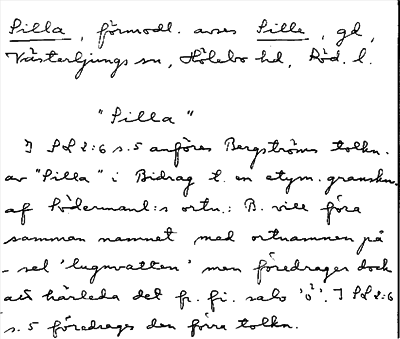 Silla, förmodl. avses Sille, gd,
Västerljungs sn, Hölebo hd, Röd. l.
"Silla"
I SL 2:6 s. 5 anföres Bergströms tolkn.
av "Silla" i Bidrag t. en etym. granskn.
af Södermanl:s ortn.: B. vill föra
samman namnet med ortnamnen på
-sel 'lugnvatten' men föredrager dock
att härleda det fr. fi. salo 'ö'. I SL 2:6
s. 5 föredrages den förra tolkn.